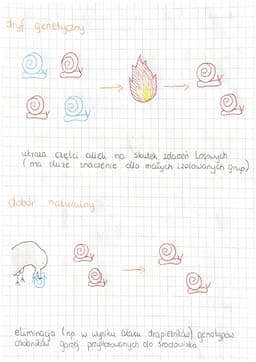 dryf genetyczny
utrata części alleli na skutek zdarzeń losowych
(ma duże znaczenie dla małych izolowanych grup)
dobór naturalny
eliminacja (np. w wyniku ataku drapieżników) genotypów
osobników gorzej przystosowanych do środowiska